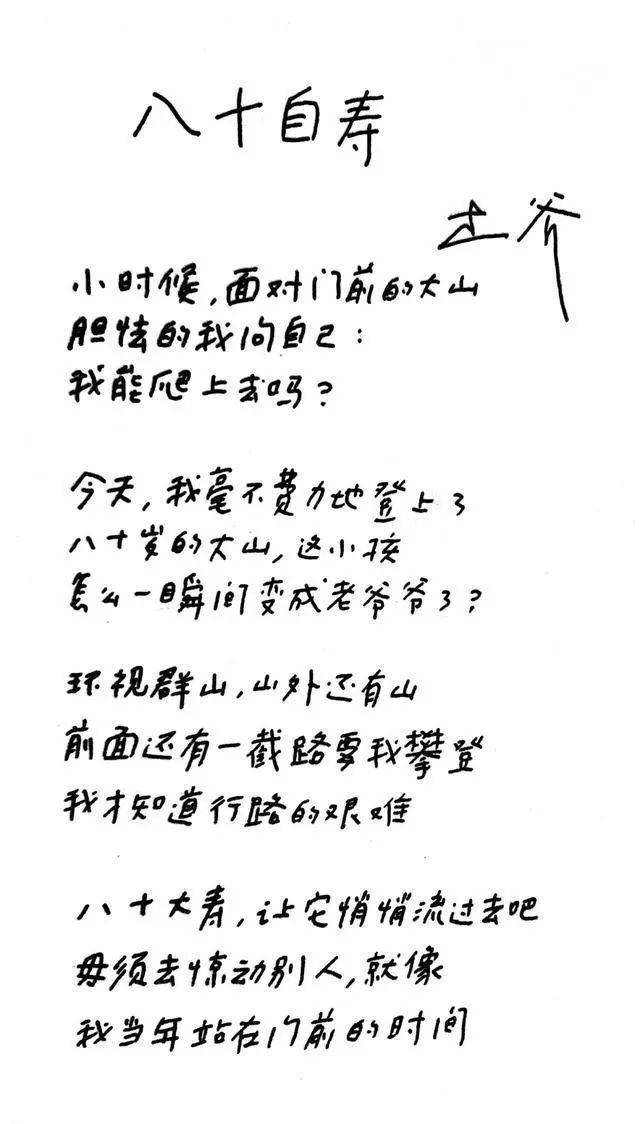 八十自寿
小时候,面对门前的大山
胆怯的我问自己:
我能爬上去吗?
今天,我毫不费力地登上了
八十岁的大山,这小孩
怎么一瞬间变成老爷爷了?
环视群山,山外还有山
前面还有一截路要我攀登
我才知道行路的艰难
八十大寿,让它悄悄流过去吧
毋须去惊动别人,就像
我当年站在门前的时间